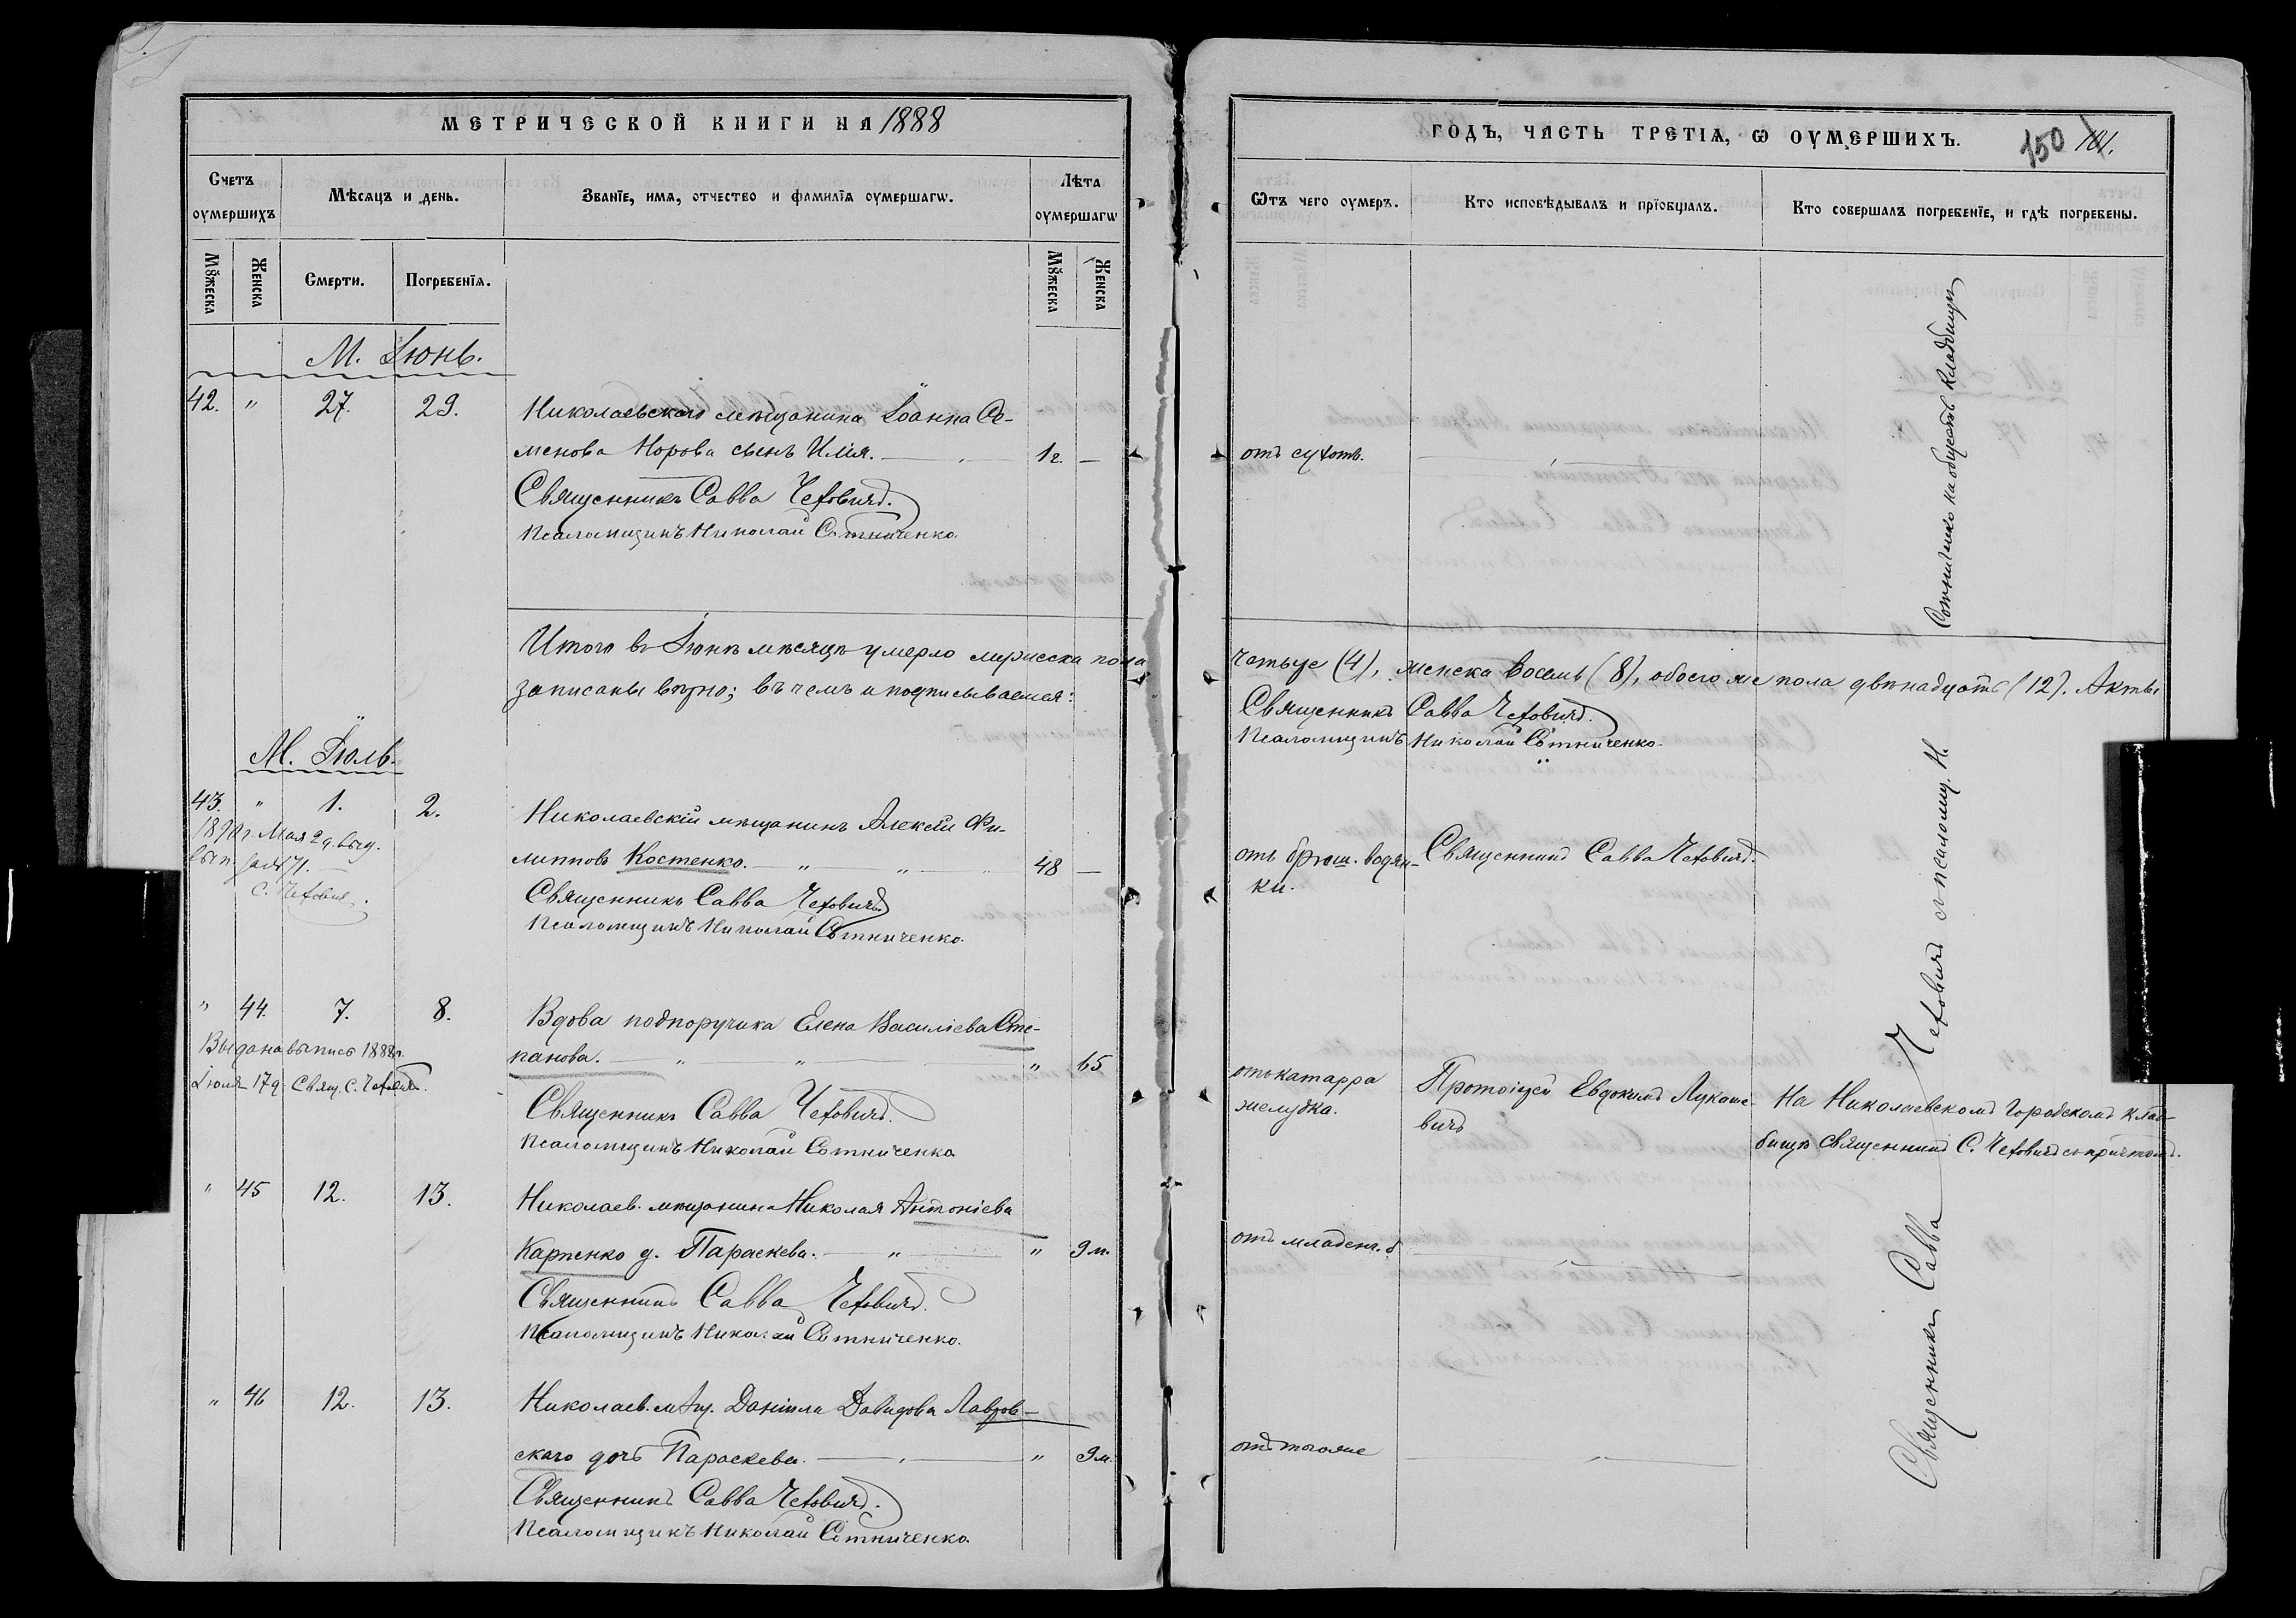 МЕТРИЧЕСКОЙ КНИГИ НА 1888
Счетъ оумершихъ
Мѣсяцъ и день.
Званїе, имя, отчество и фамилїя оумершагѡ.
Лѣта оумершагѡ
Мꙋжеска
Женска
Смерти.
Погребенїя.
Мꙋжеска
Женска
М. Іюнь.
42. " 27. 29. Николаевскаго мѣщанина Іоанна Се-
менова Норова сынъ Илія. 1 г. —
Священникъ Савва Чехович.
Псаломщикъ Николай Сотниченко.
Итого въ Іюнѣ мѣсяцѣ умерло мужеска пола
записаны вѣрно; въ чемъ и подписываемся:
М. Іюль.
43. " 1. 2. Николаевскій мѣщанинъ Алексѣй Фи-
1890 г. Мая 29. выд.
вып. за №71.
С. Чехович.
липповъ Костенко. — " — " — 48 —
Священникъ Савва Чехович.
Псаломщикъ Николай Сотниченко.
" 44. 7. 8. Вдова подпоручика Елена Василіева Сте-
Выдана выпись 1888 г.
Іюля 17 д. Свящ. С. Чехович.
панова. — " — " — " 65
Священникъ Савва Чеховичъ.
Псаломщикъ Николай Сотниченко
" 45 12. 13. Николаев. мѣщанина Николая Антоніева
Карпенко д. Параскева. — " — " 9 м.
Священникъ Савва Чеховичъ.
Псаломщикъ Николай Сотниченко.
" 46 12. 13. Николаев. мѣщ. Даніила Давидова Лавров-
скаго дочь Параскева. — " 9 м.
Священникъ Савва Чеховичъ.
Псаломщикъ Николай Сотниченко.
ГОДЪ, ЧАСТЬ ТРЕТІЯ, Ѡ ОУМЕРШИХЪ. 150 101.
Ѿтъ чего оумеръ.
Кто исповѣдывалъ и прїобщалъ.
Кто совершалъ погребенїе, и гдѣ погребены.
отъ сухот.
четыре (4), женска восемь (8), обоего же пола двѣнадцать (12). Акты
Священникъ Савва Чеховичъ.
Псаломщикъ Николай Сотниченко.
отъ брюш. водян-
ки.
Священникъ Савва Чеховичъ.
отъ катарра
желудка.
Протоіерей Евдокимъ Лукаше-
вичъ
На Николаевскомъ городскомъ клад-
бищѣ Священникъ С. Чеховичъ съ причтомъ.
отъ младенч. б
отъ того же
Священникъ Савва Чеховичъ с псаломщ. Н. Сотниченко на обществ. кладбищѣ